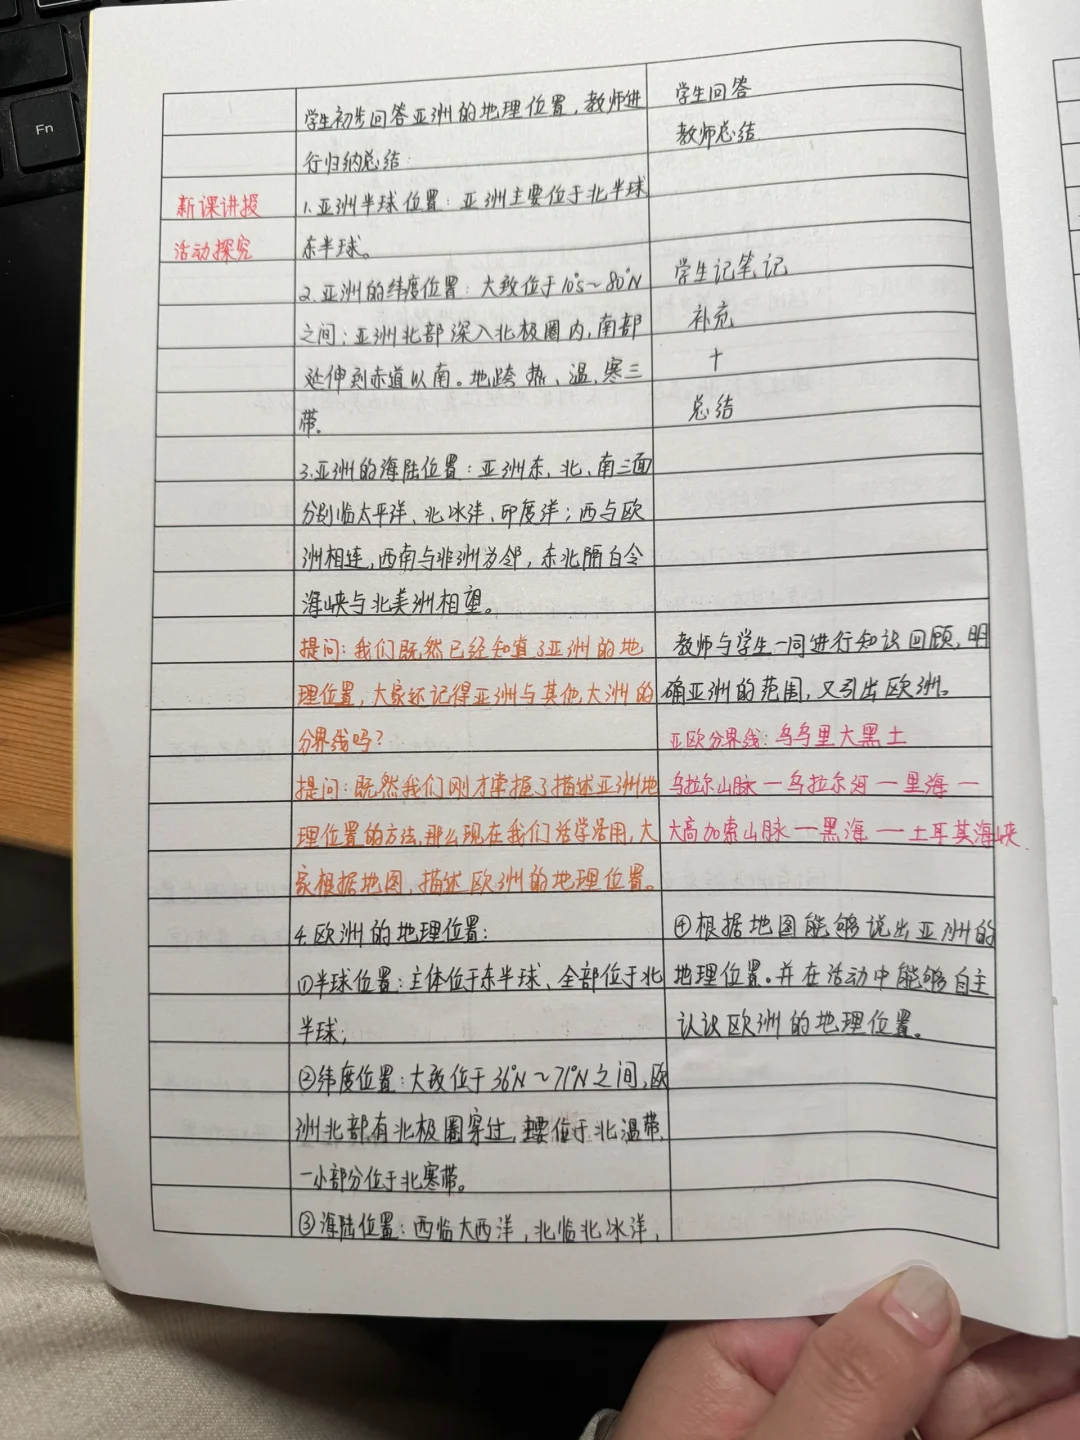 Fn
学生初步回答亚洲的地理位置,教师进
行归纳总结:
新课讲授
活动探究
1.亚洲半球位置:亚洲主要位于北半球
东半球。
2.亚洲的纬度位置:大致位于10°S~80°N
之间;亚洲北部深入北极圈内,南部
延伸到赤道以南。地跨热、温、寒三
带。
3.亚洲的海陆位置:亚洲东、北、南三面
分别临太平洋、北冰洋、印度洋;西与欧
洲相连,西南与非洲为邻,东北隔白令
海峡与北美洲相望。
提问:我们既然已经知道了亚洲的地
理位置,大家还记得亚洲与其他大洲的
分界线吗?
提问:既然我们刚才掌握了描述亚洲地
理位置的方法,那么现在我们活学活用,大
家根据地图,描述欧洲的地理位置。
4.欧洲的地理位置:
①半球位置:主体位于东半球、全部位于北
半球;
②纬度位置:大致位于36°N~71°N之间,欧
洲北部有北极圈穿过,主要位于北温带,
一小部分位于北寒带。
③海陆位置:西临大西洋,北临北冰洋,
学生回答
教师总结
学生记笔记
补充
+
总结
教师与学生一同进行知识回顾,明
确亚洲的范围,又引出欧洲。
亚欧分界线:乌乌里大黑土
乌拉尔山脉—乌拉尔河—里海—
大高加索山脉—黑海—土耳其海峡
④根据地图能够说出亚洲的
地理位置。并在活动中能够自主
认识欧洲的地理位置。